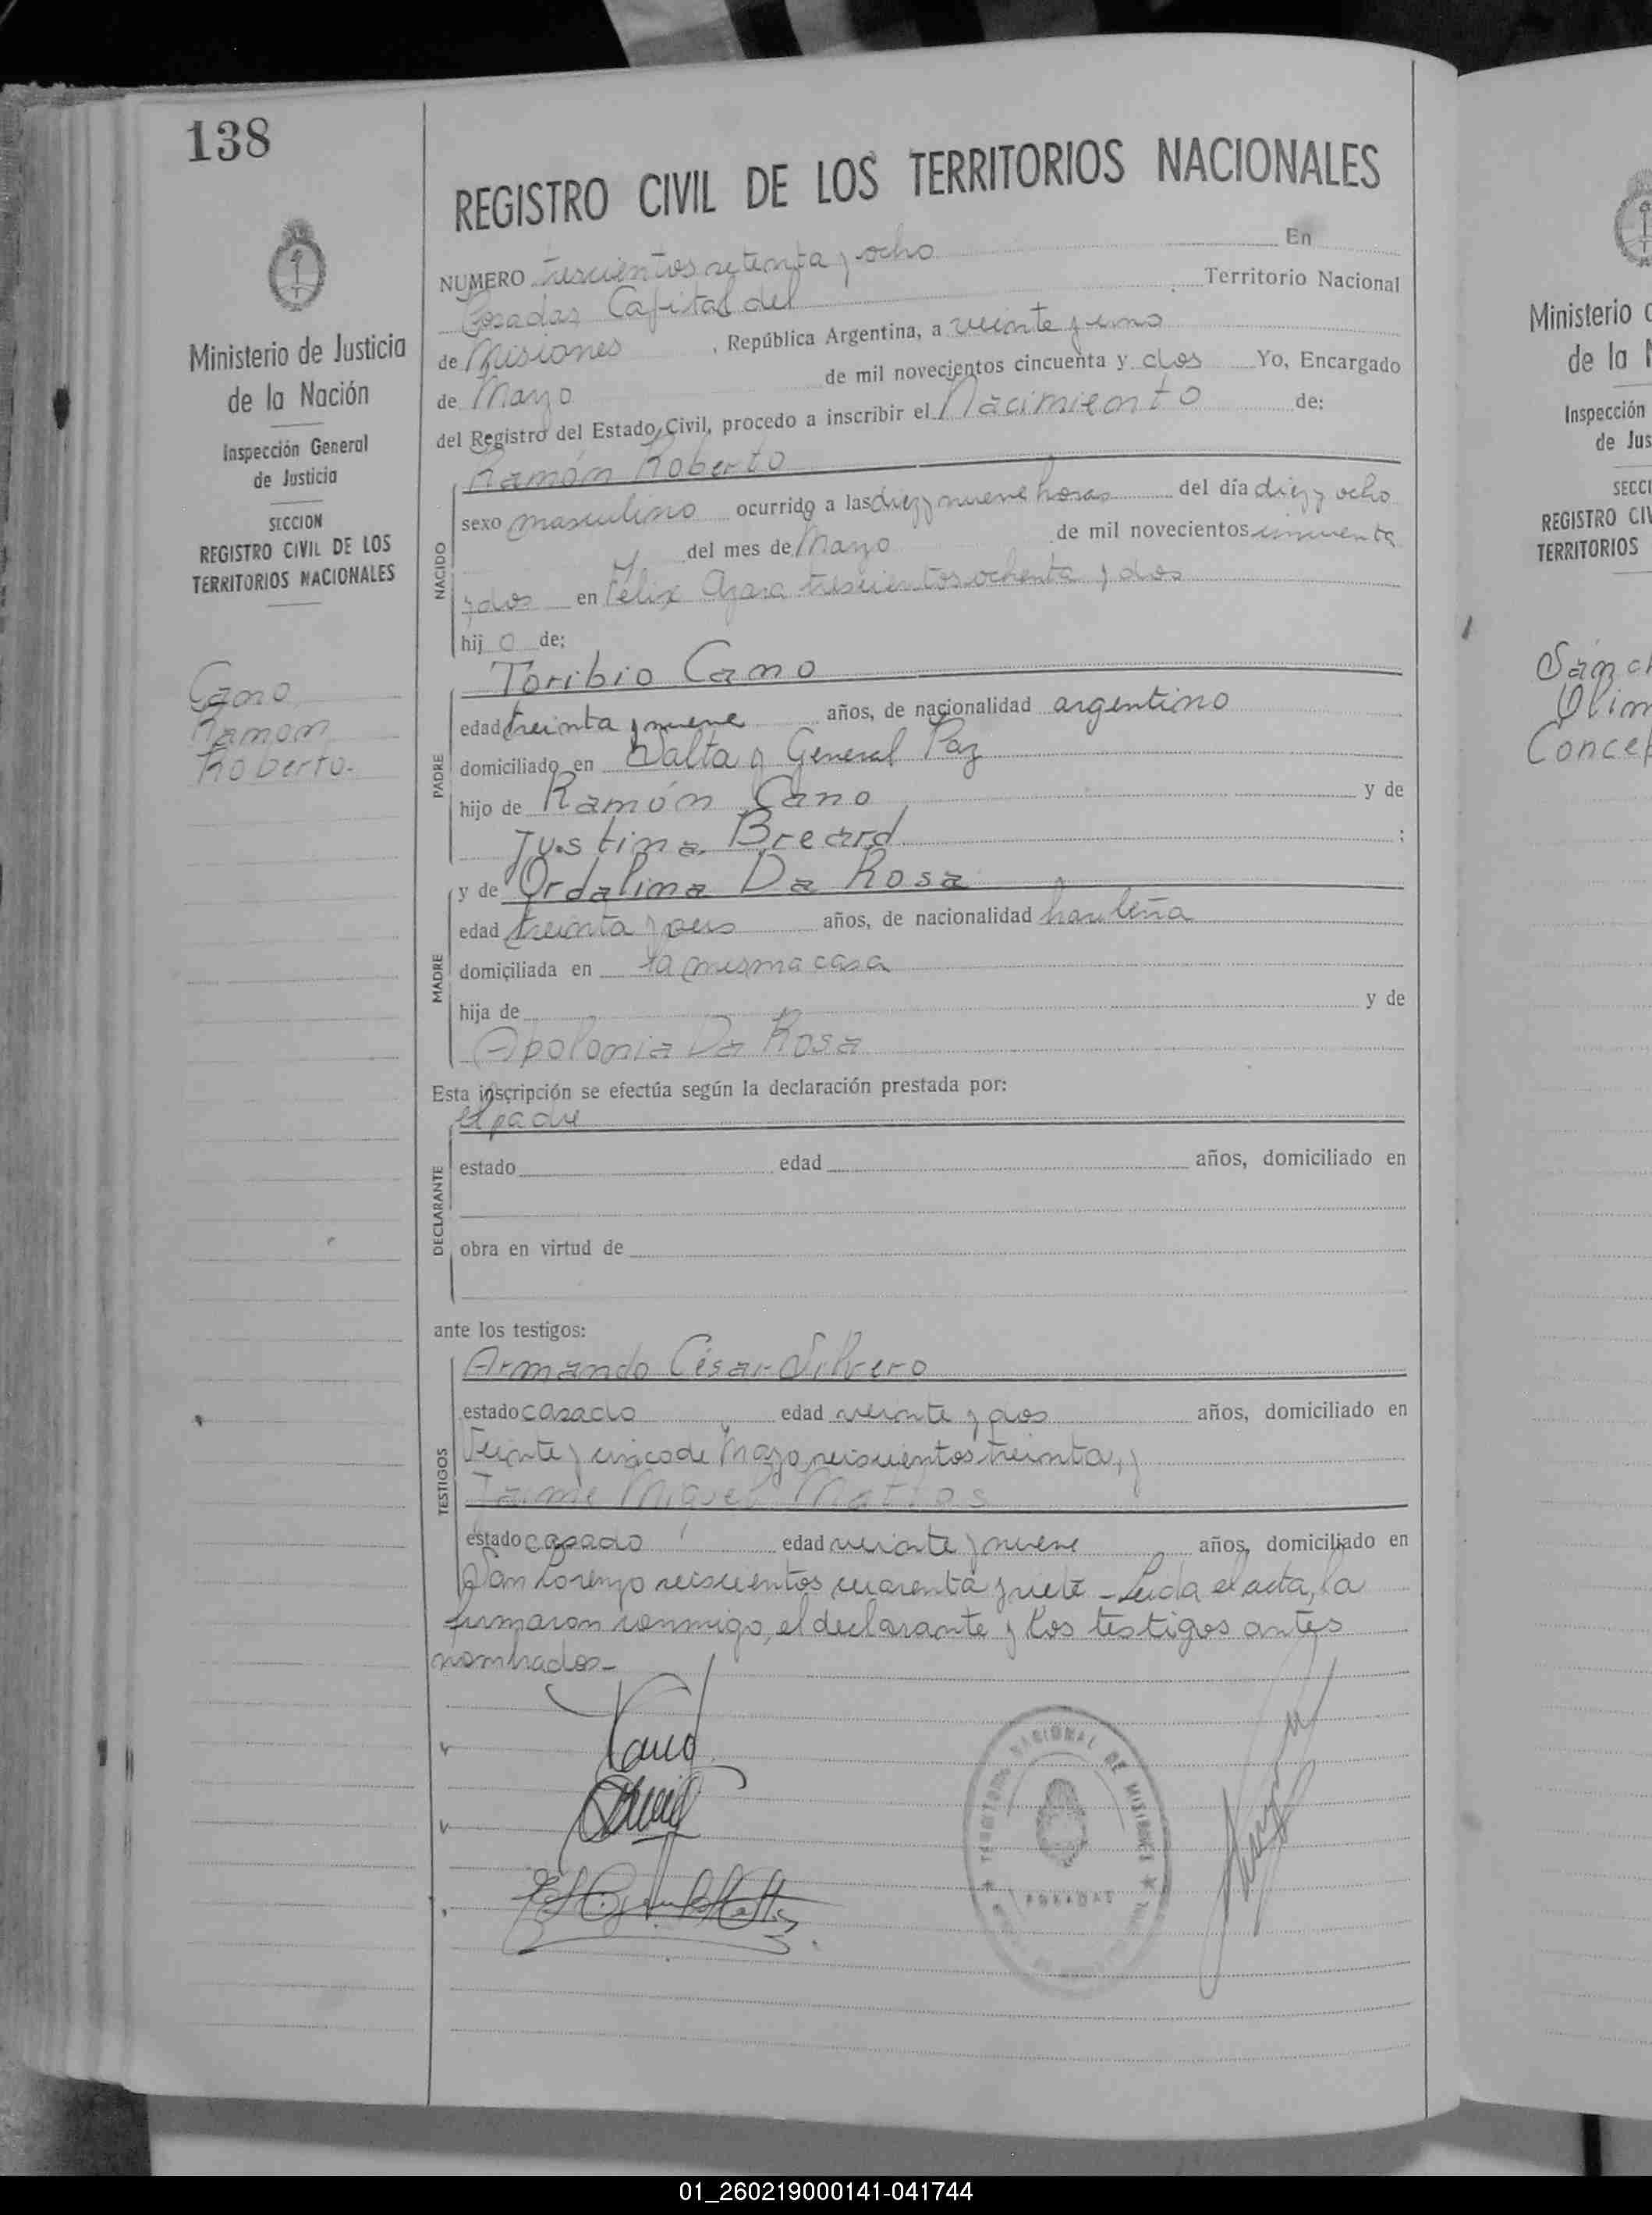 138
Ministerio de Justicia
de la Nación
Inspección General
de Justicia
SECCION
REGISTRO CIVIL DE LOS
TERRITORIOS NACIONALES
Cano
Ramon
Roberto.-
REGISTRO CIVIL DE LOS TERRITORIOS NACIONALES
NUMERO trescientos setenta y ocho En
Posadas Capital del Territorio Nacional
de Misiones, República Argentina, a veinte y uno
de Marzo de mil novecientos cincuenta y dos Yo, Encargado
del Registro del Estado Civil, procedo a inscribir el Nacimiento de:
NACIDO
Ramón Roberto
sexo masculino ocurrido a las diez y nueve horas del día diez y ocho
del mes de Marzo de mil novecientos cincuenta
y dos en Félix Azara trescientos ochenta y dos
hij o de;
PADRE
Toribio Cano
edad treinta y nueve años, de nacionalidad argentino
domiciliado en Salta y General Paz
hijo de Ramón Cano y de
Justina Breard ;
MADRE
y de Ordalima Da Rosa
edad treinta y seis años, de nacionalidad brasileña
domiciliada en la misma casa
hija de y de
Apolonia Da Rosa
Esta inscripción se efectúa según la declaración prestada por:
DECLARANTE
el padre
estado edad años, domiciliado en
obra en virtud de
ante los testigos:
TESTIGOS
Armando César Silvero
estado casado edad veinte y dos años, domiciliado en
Veinte y cinco de Mayo seiscientos treinta, y
Jaime Miguel Mattos
estado casado edad veinte y nueve años, domiciliado en
San Lorenzo seiscientos cuarenta y siete - Leida el acta, la
firmaron conmigo, el declarante y los testigos antes
nombrados-
Cano
TERRITORIO NACIONAL DE MISIONES
POSADAS
Ministerio
de la
Inspección
de Jus
SECCI
REGISTRO CIV
TERRITORIOS
Sánch
Olim
Concep
01_260219000141-041744